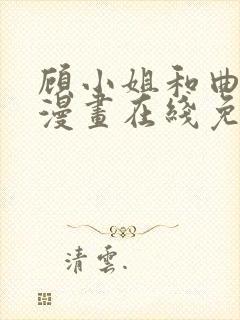 顾小姐和曲
漫畫在綫免
清雲.